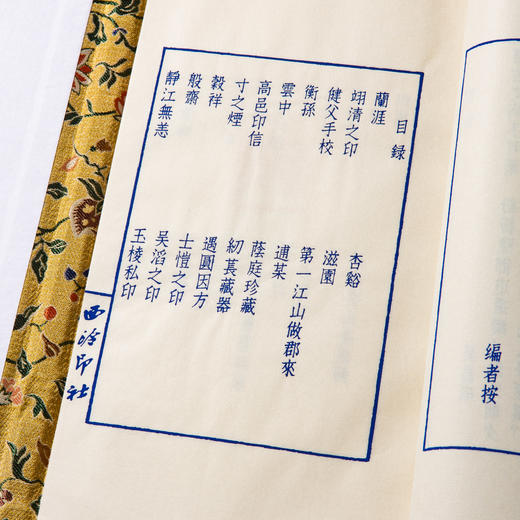 编者按
目録
蘭涯 杏谿
翊清之印 滋園
健父手校 第一江山做郡來
衡孫 逋某
雲中 蔭庭珍藏
高邑印信 紉萇藏器
寸之煙 遇圓因方
穀祥 士愷之印
般齋 吴滔之印
靜江無恙 玉棱私印
西泠印社